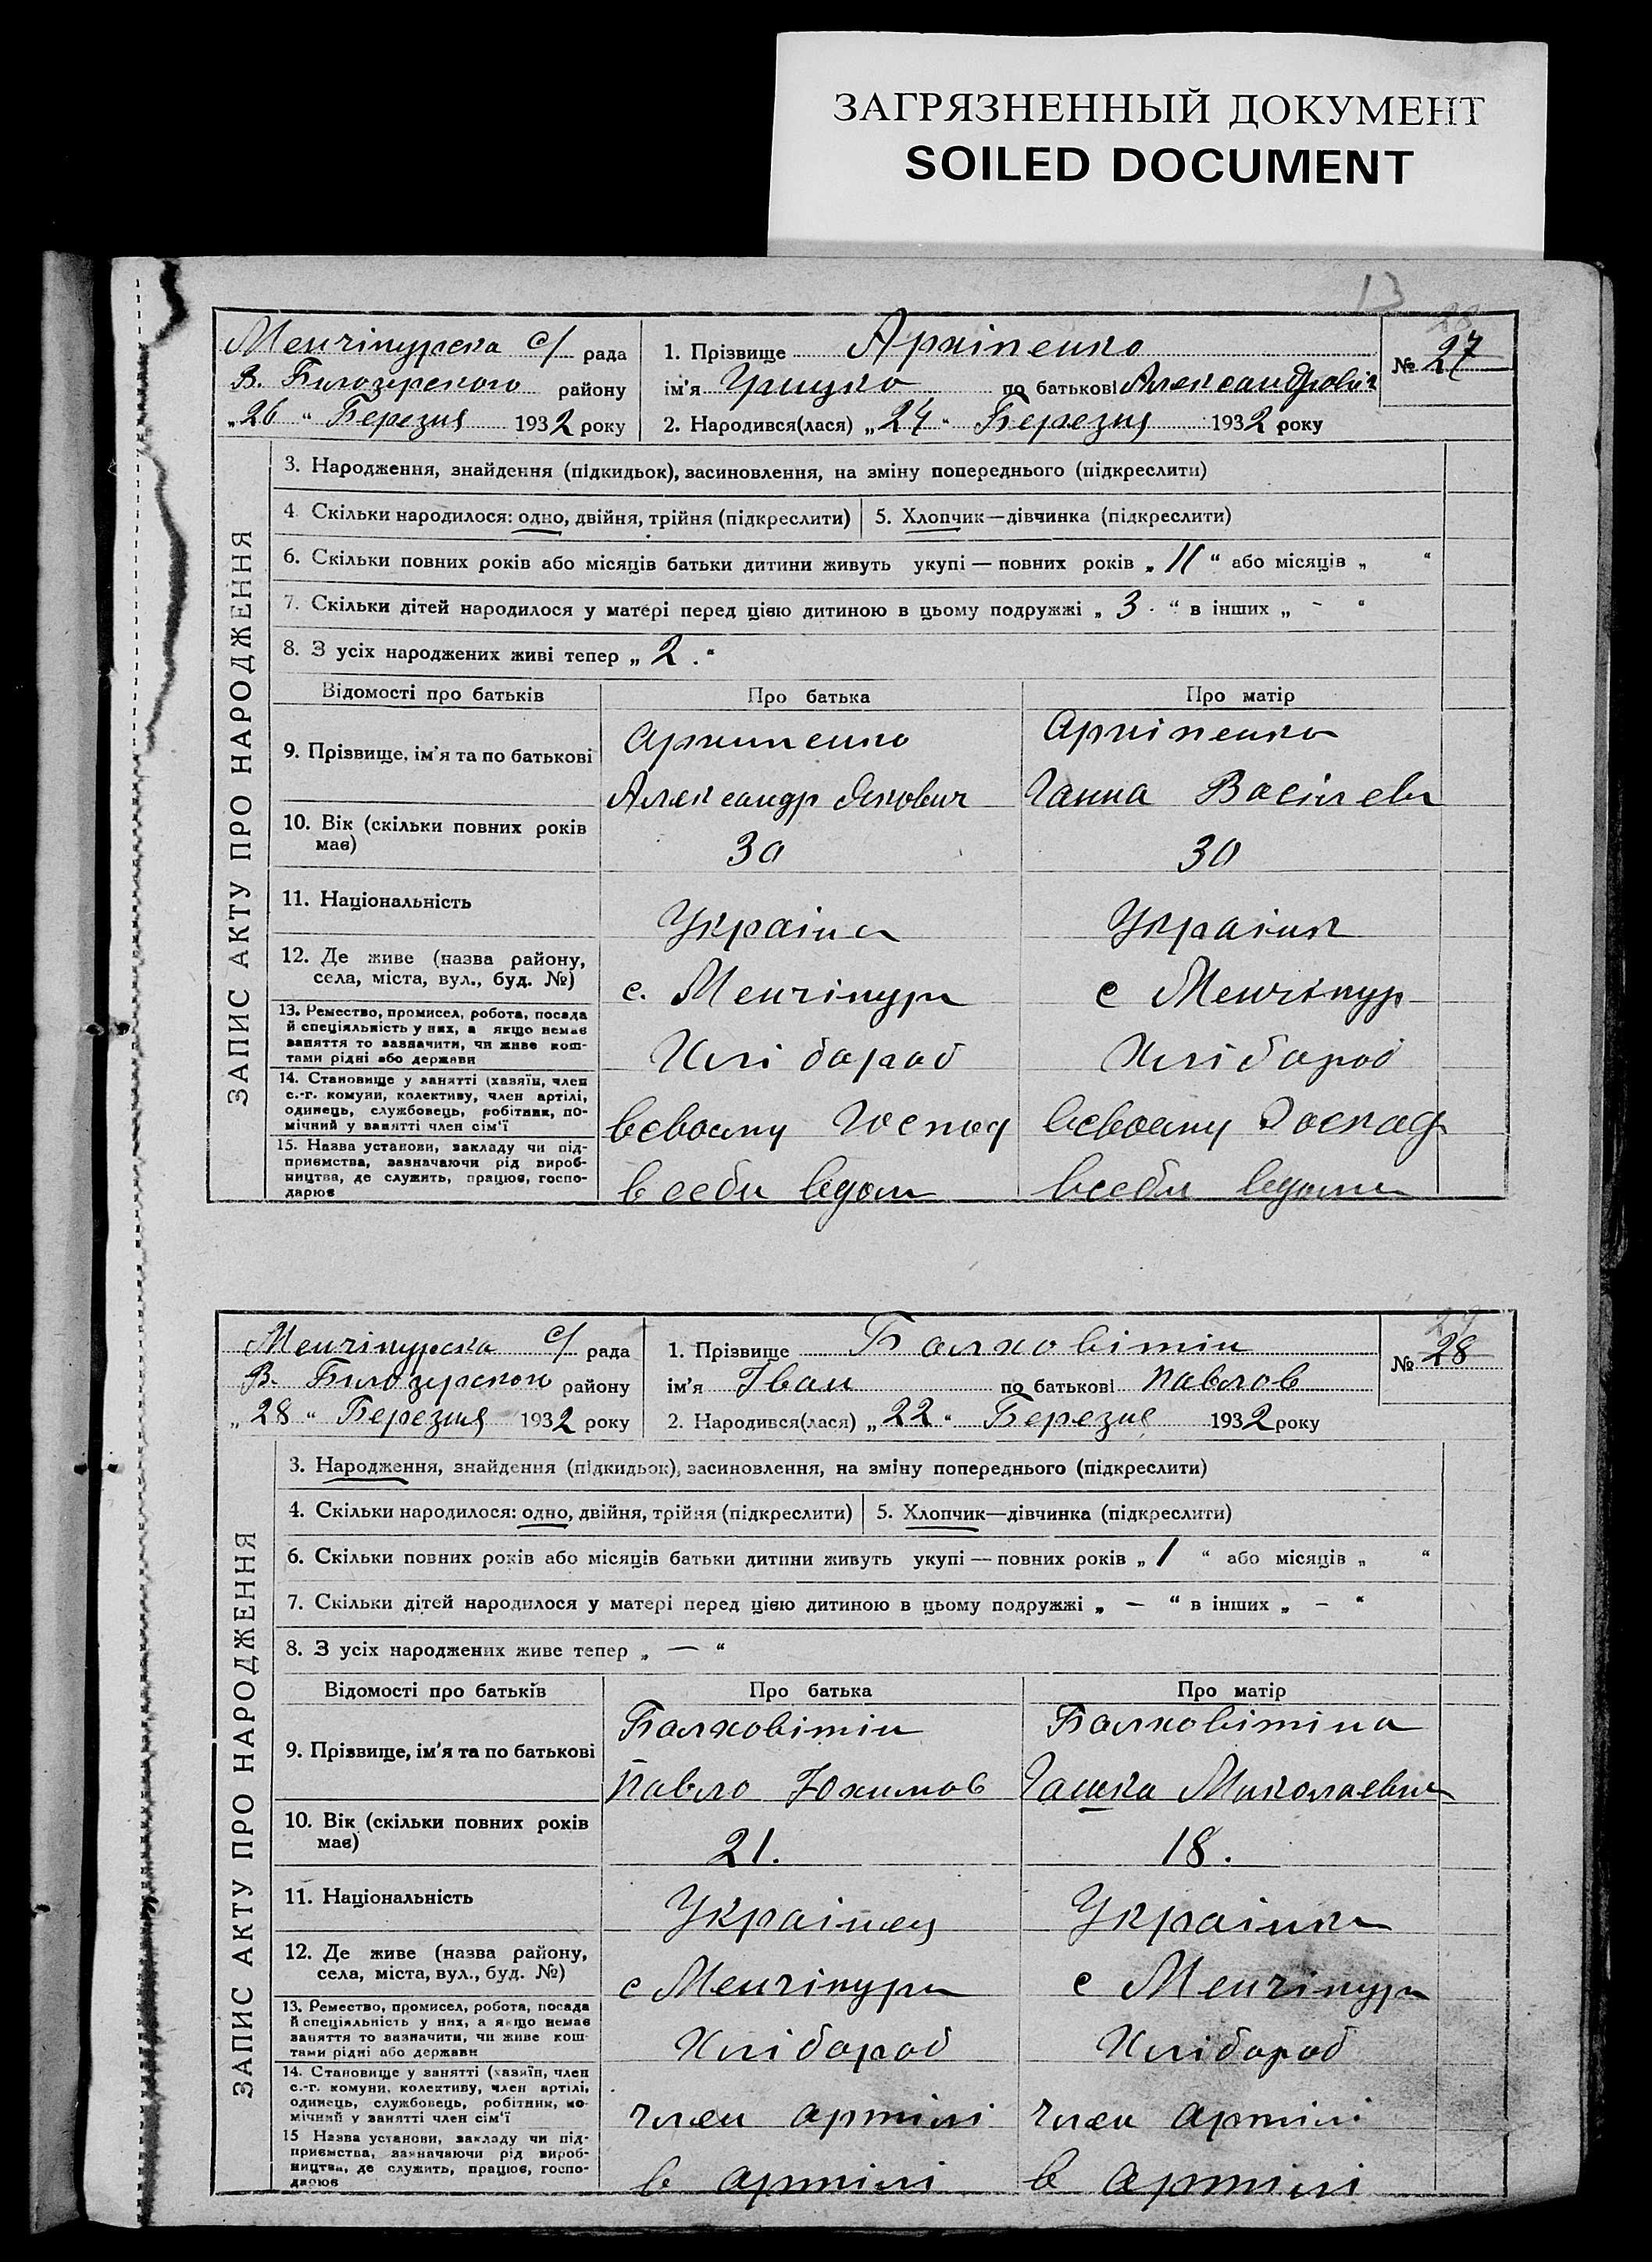 ЗАГРЯЗНЕННЫЙ ДОКУМЕНТ
SOILED DOCUMENT
13
Менчікурска с/ рада
В. Білозерского району
„26“ Березня 1932 року
1. Прізвище Архіпенко
ім'я Грицко по батькові Александрович
2. Народився(лася) „24“ Березня 1932 року
№ 27
ЗАПИС АКТУ ПРО НАРОДЖЕННЯ
3. Народження, знайдення (підкидьок), засиновлення, на зміну попереднього (підкреслити)
4. Скільки народилося: одно, двійня, трійня (підкреслити) 5. Хлопчик—дівчинка (підкреслити)
6. Скільки повних років або місяців батьки дитини живуть укупі — повних років „11“ або місяців „ “
7. Скільки дітей народилося у матері перед цією дитиною в цьому подружжі „3.“ в інших „-“
8. З усіх народжених живі тепер „2.“
Відомості про батьків Про батька Про матір
9. Прізвище, ім'я та по батькові
Архипенко Архіпенко
Александр Якович Ганна Васілев
10. Вік (скільки повних років має)
30 30
11. Національність
Україне Українк
12. Де живе (назва району, села, міста, вул., буд. №)
с. Менчікури с Менчікур
13. Ремество, промисел, робота, посада й спеціяльність у них, а якщо немає заняття то зазначити, чи живе коштами рідні або держави
Хлібороб Хлібороб
14. Становище у занятті (хазяїн, член с.-г. комуни, колективу, член артілі, одинець, службовець, робітник, помічний у занятті член сім'ї
всвоему Господ всвоему Господ
15. Назва установи, закладу чи підприємства, зазначаючи рід виробництва, де служить, працює, господарює
в себи вдоми всеби вдоми
Менчікурска с/ рада
В. Білозерского району
„28“ Березня 1932 року
1. Прізвище Балховітін
ім'я Іван по батькові Павлов
2. Народився(лася) „22“ Березня 1932 року
№ 28
ЗАПИС АКТУ ПРО НАРОДЖЕННЯ
3. Народження, знайдення (підкидьок), засиновлення, на зміну попереднього (підкреслити)
4. Скільки народилося: одно, двійня, трійня (підкреслити) 5. Хлопчик—дівчинка (підкреслити)
6. Скільки повних років або місяців батьки дитини живуть укупі — повних років „1“ або місяців „ “
7. Скільки дітей народилося у матері перед цією дитиною в цьому подружжі „—“ в інших „-“
8. З усіх народжених живе тепер „—“
Відомості про батьків Про батька Про матір
9. Прізвище, ім'я та по батькові
Балховітін Балховітіна
Павло Юхимов Гашка Миколаевн
10. Вік (скільки повних років має)
21. 18.
11. Національність
Українец Українка
12. Де живе (назва району, села, міста, вул., буд. №)
с Менчікури с Менчікури
13. Ремество, промисел, робота, посада й спеціяльність у них, а якщо немає заняття то зазначити, чи живе коштами рідні або держави
Хлібороб Хлібороб
14. Становище у занятті (хазяїн, член с.-г. комуни, колективу, член артілі, одинець, службовець, робітник, помічний у занятті член сім'ї
член артілі член артілі
15 Назва установи, закладу чи підприємства, зазначаючи рід виробництва, де служить, працює, господарює
в артілі в артілі